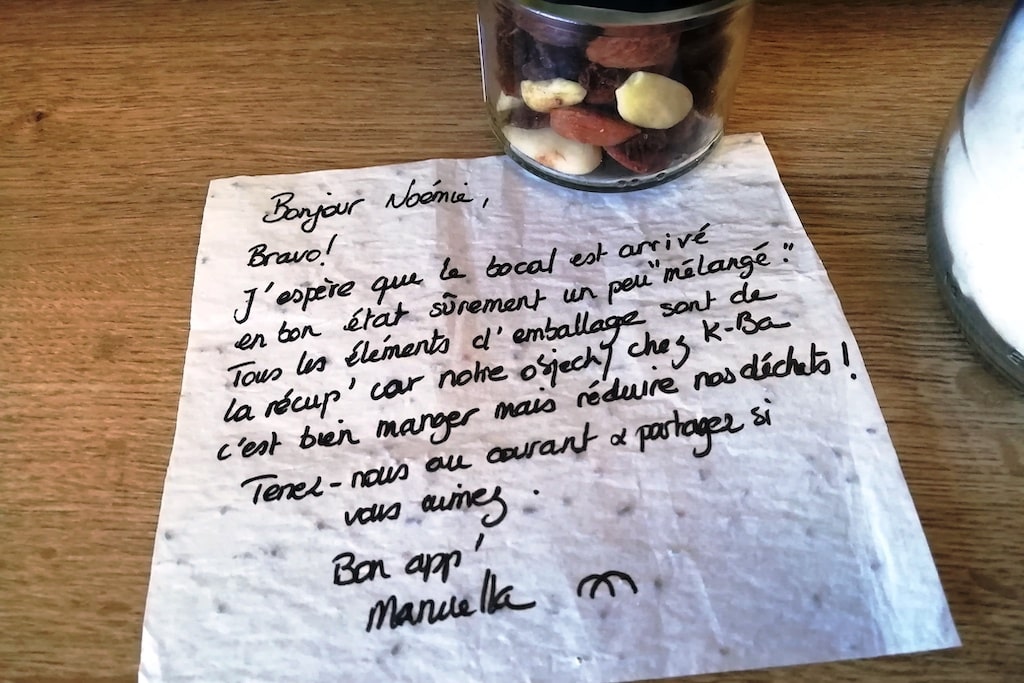 Bonjour Noémie,
Bravo!
J'espère que le bocal est arrivé
en bon état sûrement un peu "mélangé".
Tous les éléments d'emballage sont de
la récup' car notre objectif chez K-Ba
c'est bien manger mais réduire nos déchets !
Tenez-nous au courant & partagez si
vous aimez.
Bon app'
Manuella